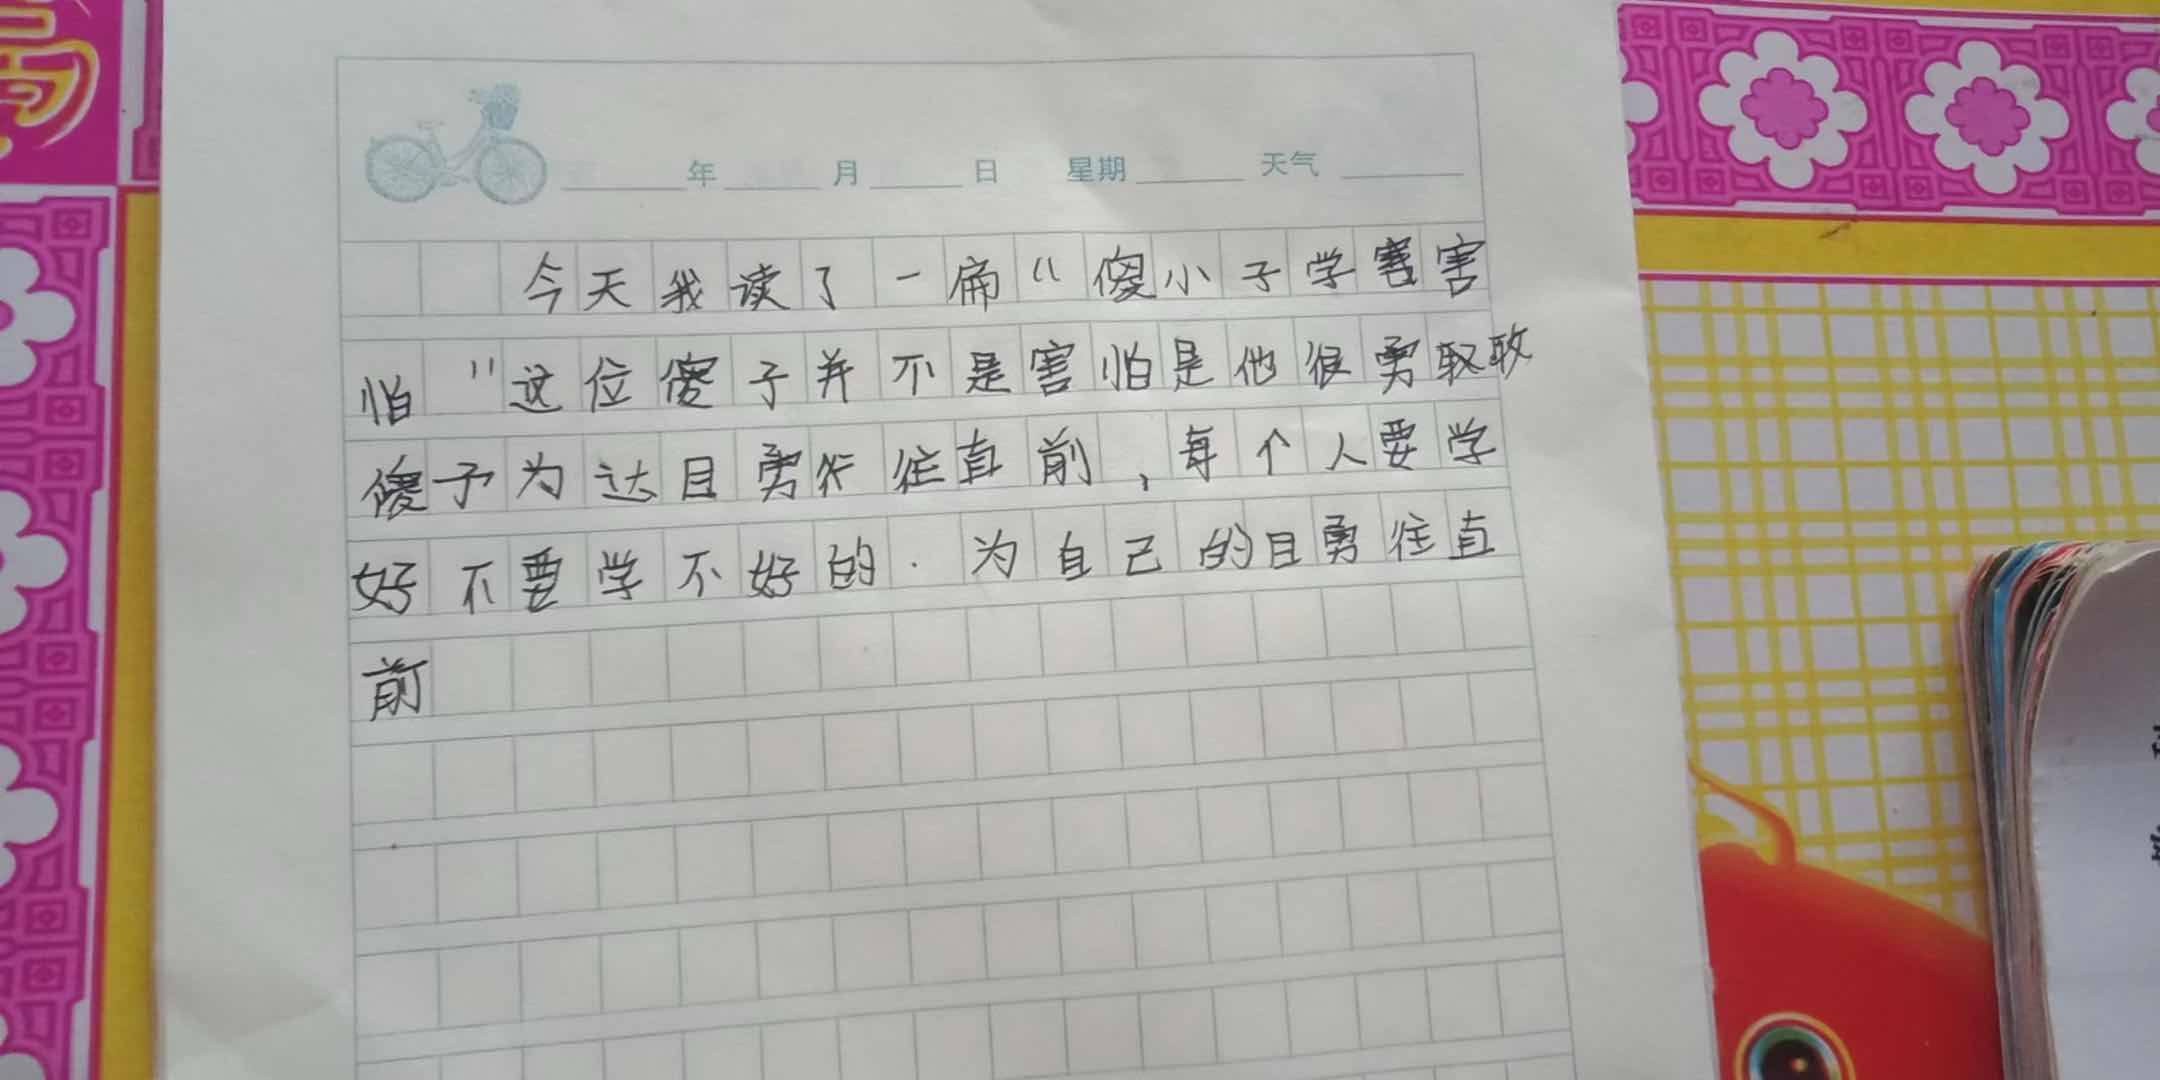 年 月 日 星期 天气
今天我读了一篇“傻小子学害害
怕”这位傻子并不是害怕是他很勇敢敢
傻子为达目勇往直前，每个人要学
好不要学不好的. 为自己的目勇往直
前